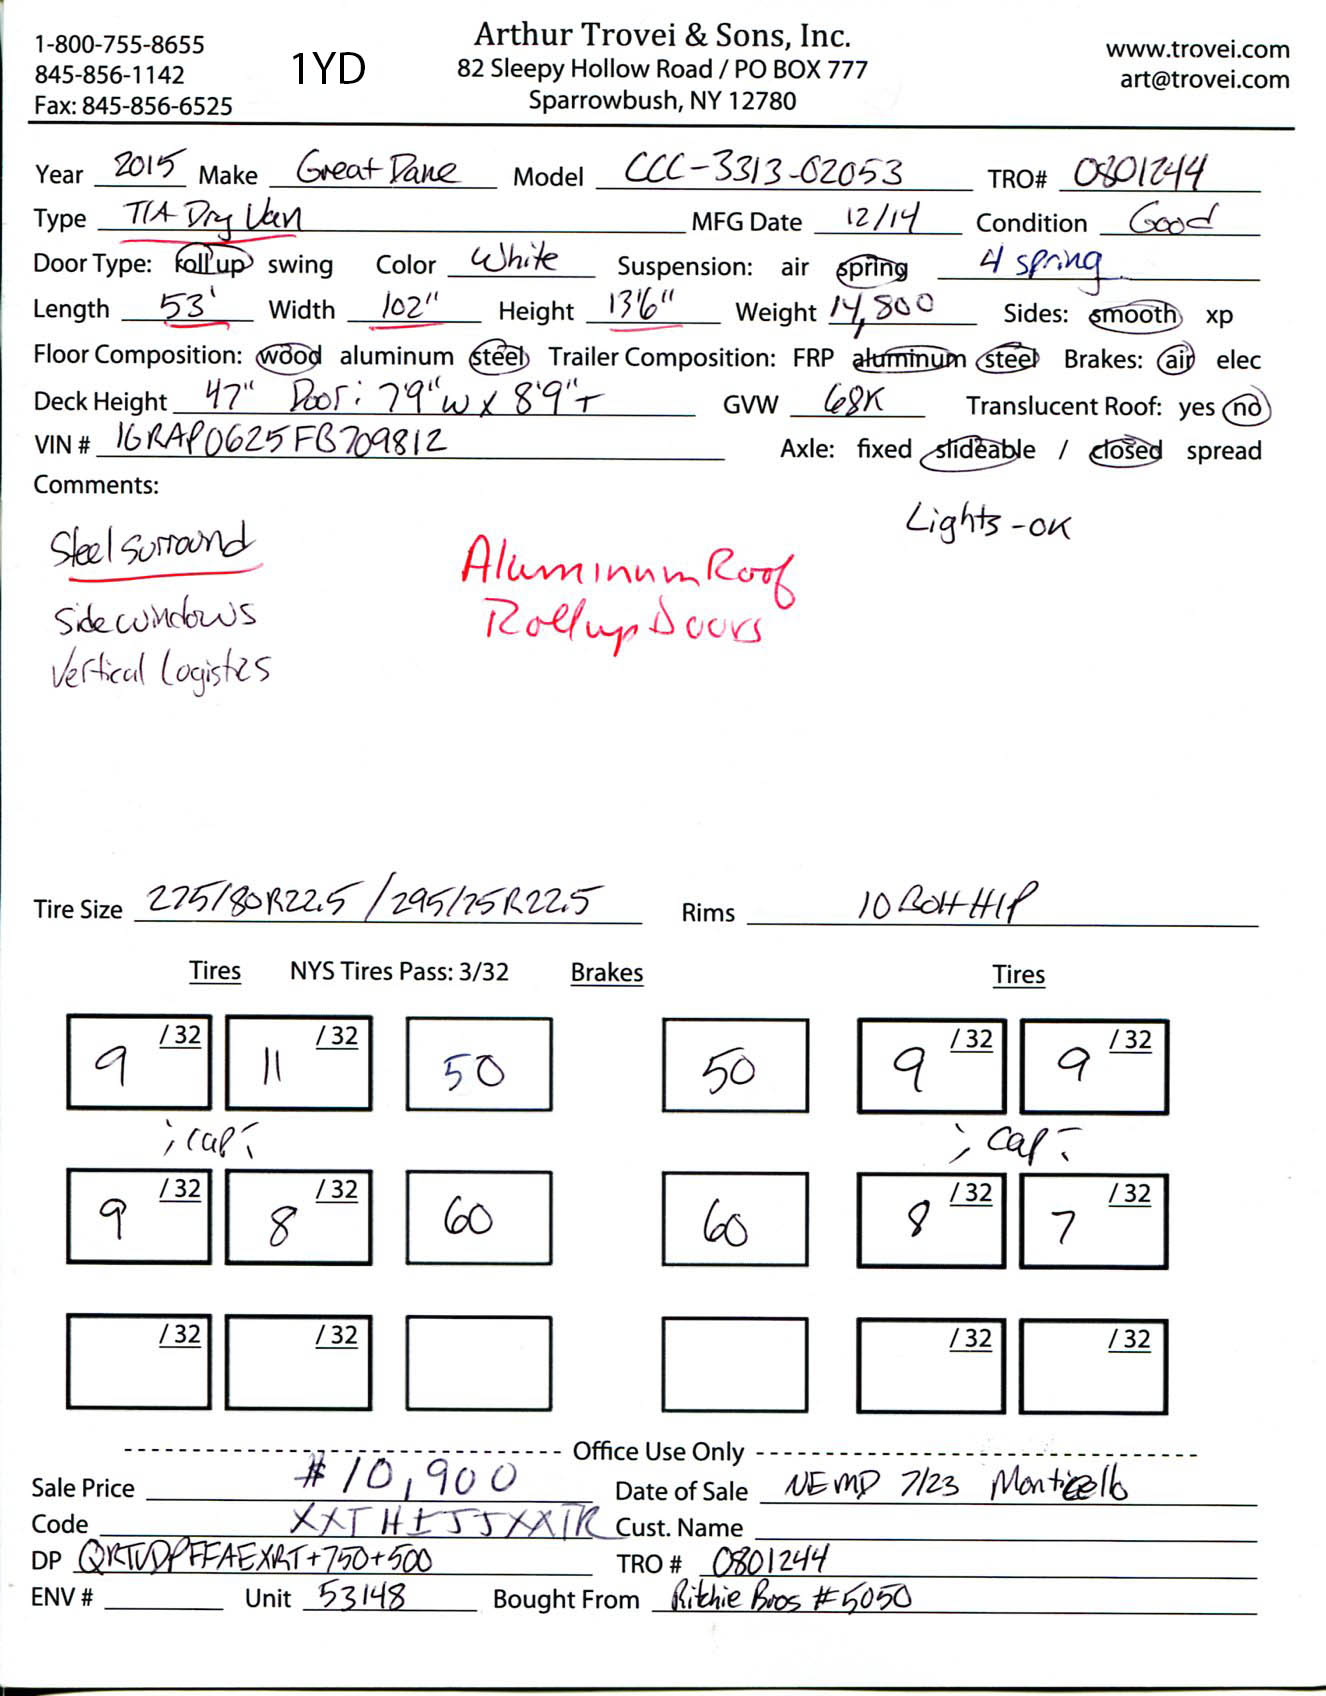 1-800-755-8655
845-856-1142
Fax: 845-856-6525
1YD
Arthur Trovei & Sons, Inc.
82 Sleepy Hollow Road / PO BOX 777
Sparrowbush, NY 12780
www.trovei.com
art@trovei.com
Year 2015 Make Great Dane Model CCC-3313-02053 TRO# 0801244
Type T/A Dry Van MFG Date 12/14 Condition Good
Door Type: roll up swing Color White Suspension: air spring 4 spring
Length 53' Width 102" Height 13'6" Weight 14,800 Sides: smooth xp
Floor Composition: wood aluminum steel Trailer Composition: FRP aluminum steel Brakes: air elec
Deck Height 47" Door: 7'9"W x 8'9"T GVW 68K Translucent Roof: yes no
VIN # 1GRAP0625FB709812 Axle: fixed slideable / closed spread
Comments:
Lights-OK
Steel surround
Aluminum Roof
Rollup Doors
Side windows
Vertical Logistics
Tire Size 275/80R22.5 / 295/75R22.5 Rims 10 BOH H1P
Tires NYS Tires Pass: 3/32 Brakes Tires
9 /32 11 /32 50 50 9 /32 9 /32
; cap ; cap
9 /32 8 /32 60 60 8 /32 7 /32
/32 /32 /32 /32
Office Use Only
Sale Price $10,900 Date of Sale NEMD 7/23 Monticello
Code XXTHIJJXXTR Cust. Name
DP QRTVDPFFAEXRT+750+500 TRO # 0801244
ENV # Unit 53148 Bought From Ritchie Bros #5050